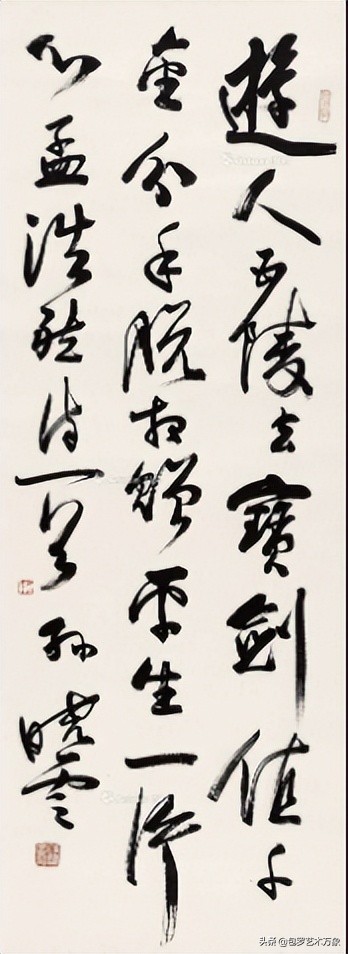 遊人五陵去寶劍值千
金分手脫相贈平生一片
心孟浩然詩一首 孫曉雲
头条 @包罗艺术万象